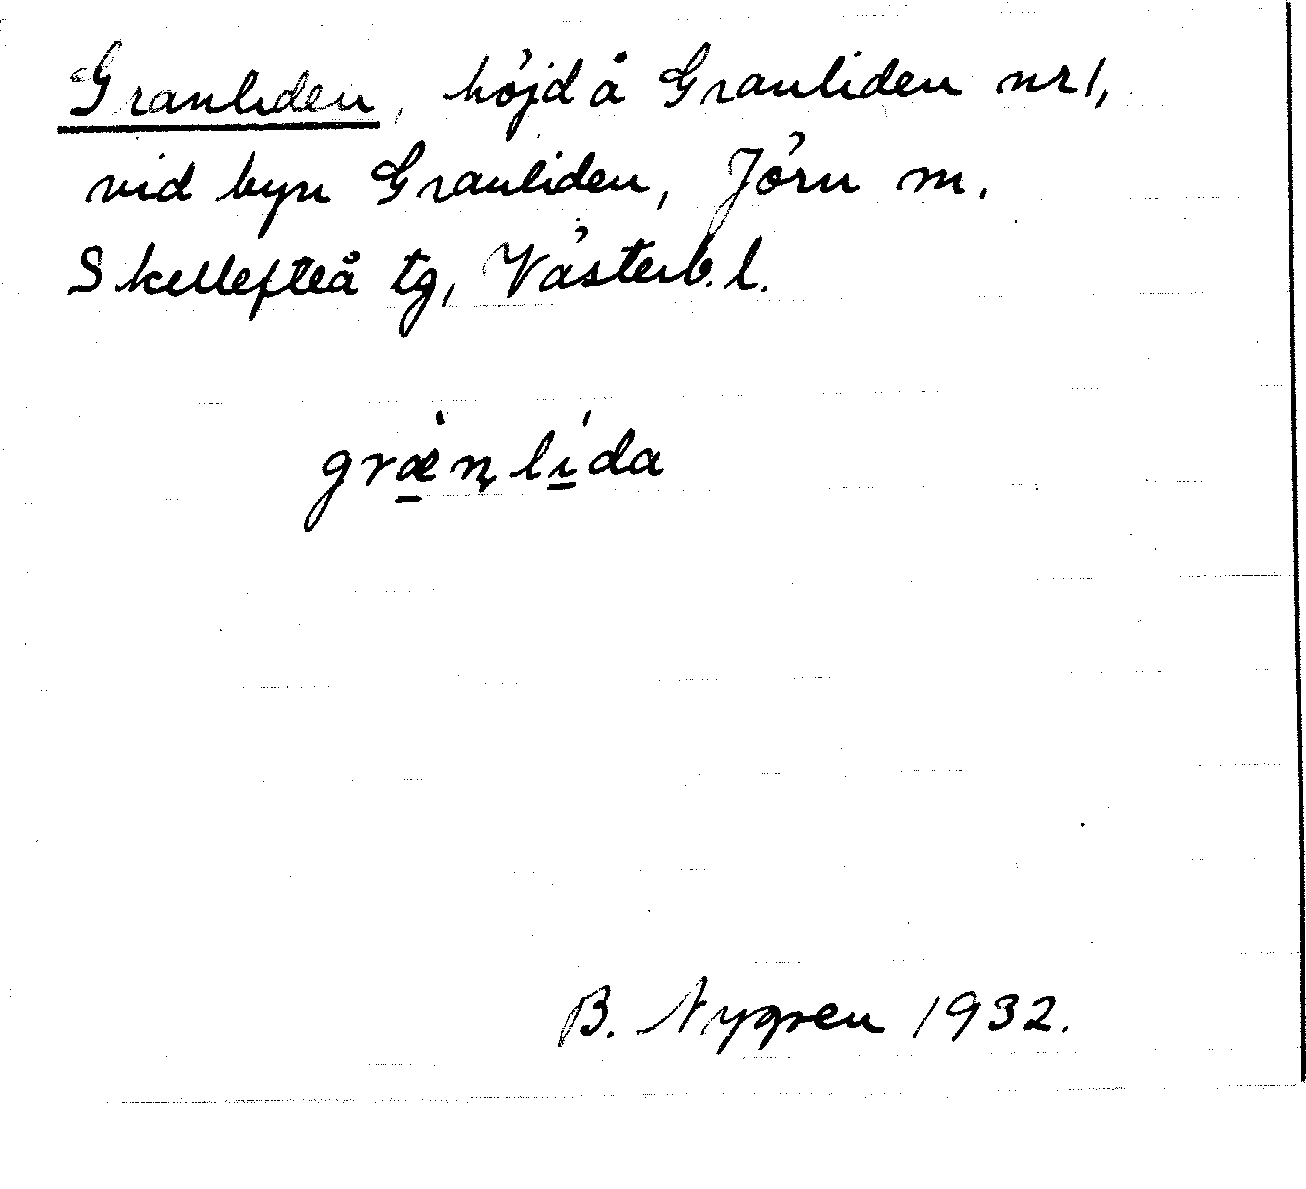 Granliden, höjd å Granliden nr 1,
vid byn Granliden, Jörn sn.
Skellefteå tg, Västerb. l.
græ̲̀ņlı̲́da
B. Nygren 1932.